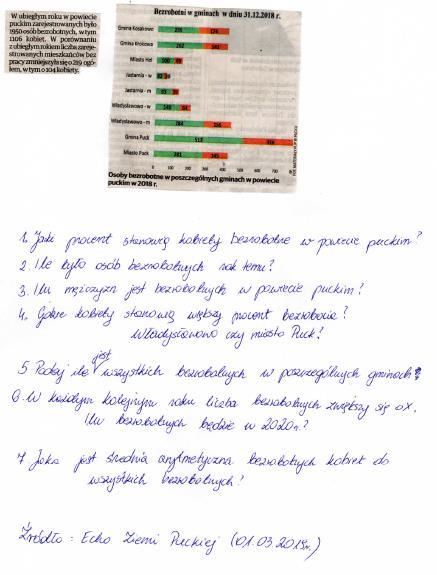 W ubiegłym roku w powiecie
puckim zarejestrowanych było
1950 osób bezrobotnych, w tym
1106 kobiet. W porównaniu
z ubiegłym rokiem liczba zareje-
strowanych mieszkańców bez
pracy zmniejszyła się o 219 ogó-
łem, w tym o 104 kobiety.
Bezrobotni w gminach w dniu 31.12.2018 r.
Gmina Kosakowo
Gmina Krokowa
Miasto Hel
Jastarnia - w
Jastarnia - m
Władysławowo - w
Władysławowo - m
Gmina Puck
Miasto Puck
Osoby bezrobotne w poszczególnych gminach w powiecie
puckim w 2018 r.
1. Jaki procent stanowią kobiety bezrobotne w powiecie puckim?
2. Ile było osób bezrobotnych rok temu?
3. Ilu mężczyzn jest bezrobotnych w powiecie puckim?
4. Gdzie kobiety stanowią większy procent bezrobocia?
Władysławowo czy miasto Puck?
5 Podaj ile jest wszystkich bezrobotnych w poszczególnych gminach?
6. W każdym kolejnym roku liczba bezrobotnych zwiększy się o x.
Ilu bezrobotnych będzie w 2020r.?
7 Jaka jest średnia arytmetyczna bezrobotnych kobiet do
wszystkich bezrobotnych?
Źródło: Echo Ziemi Puckiej (01.03.2019r.)